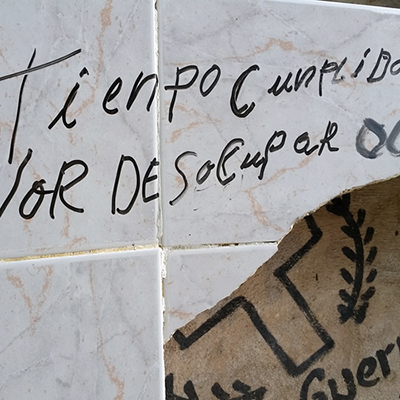 Tienpo CunpLiDo
VOR DESoCupaR
Guer